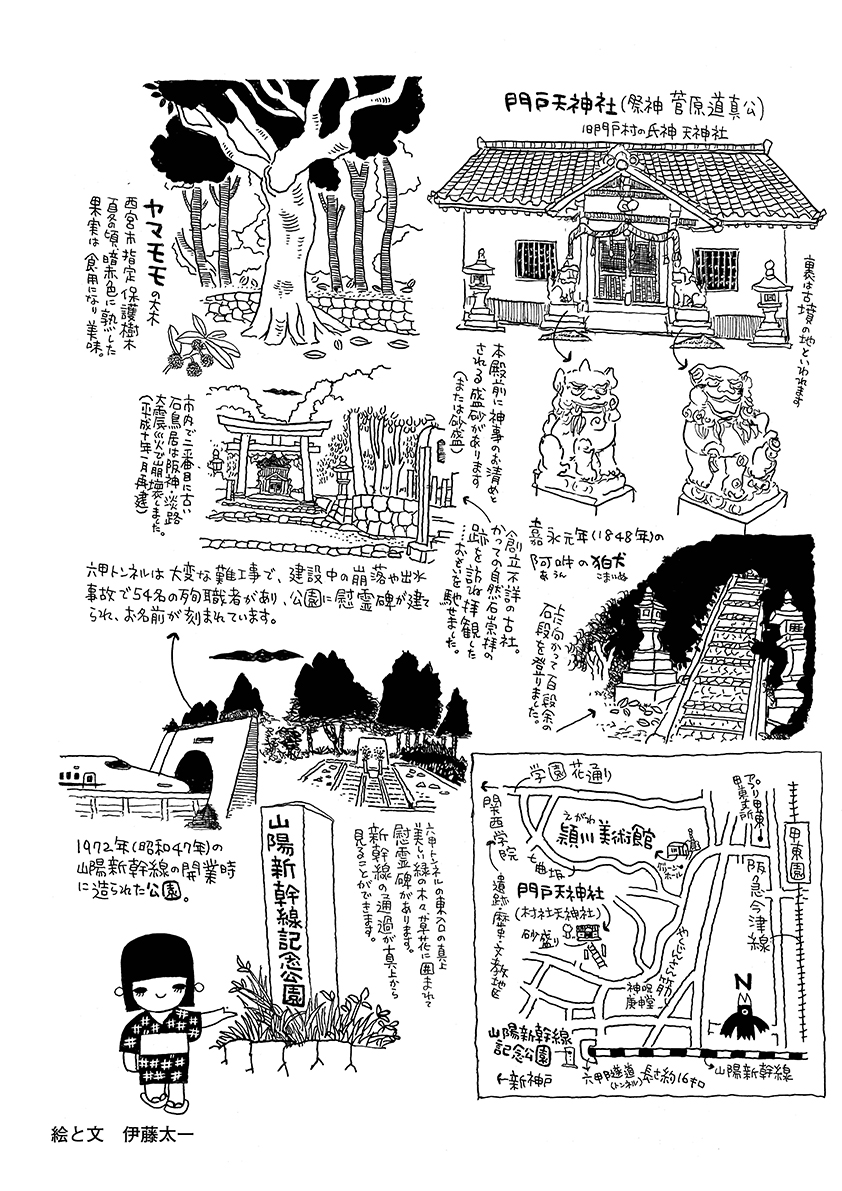 門戸天神社(祭神 菅原道真公)
旧門戸村の氏神 天神社
裏は古墳の地といわれます
ヤマモモの大木
西宮市指定保護樹木
夏の頃、暗赤色に熟した
果実は食用になり美味。
本殿前に神事のお清めと
される盛砂があります
(または砂盛)
市内で二番目に古い
石鳥居は阪神・淡路
大震災で崩壊しました。
(平成十年一月再建)
嘉永元年(1848年)の
阿吽の狛犬
あうん
こまいぬ
創立不詳の古社。
かつての自然石崇拝の
跡を訪ね拝観した
…おもいを馳せました。
上に向かって百段余の
石段を登りました。
六甲トンネルは大変な難工事で、建設中の崩落や出水
事故で54名の殉職者があり、公園に慰霊碑が建て
られ、お名前が刻まれています。
1972年(昭和47年)の
山陽新幹線の開業時
に造られた公園。
山陽新幹線記念公園
六甲トンネルの東入口の真上
美しい緑の木々、草花に囲まれて
慰霊碑があります。
新幹線の通過が真上から
見ることができます。
学園花通り
関西学院
遺跡・歴史・文教地区
えがわ
頴川美術館
七曲り坂
門戸天神社
(村社天神社)
砂盛り
やくじんさん筋
神呪
庚申堂
アプリ甲東
甲東支所
甲東園
阪急今津線
N
山陽新幹線
記念公園
←新神戸
六甲隧道
(トンネル)
長さ約16キロ
山陽新幹線
絵と文　伊藤太一